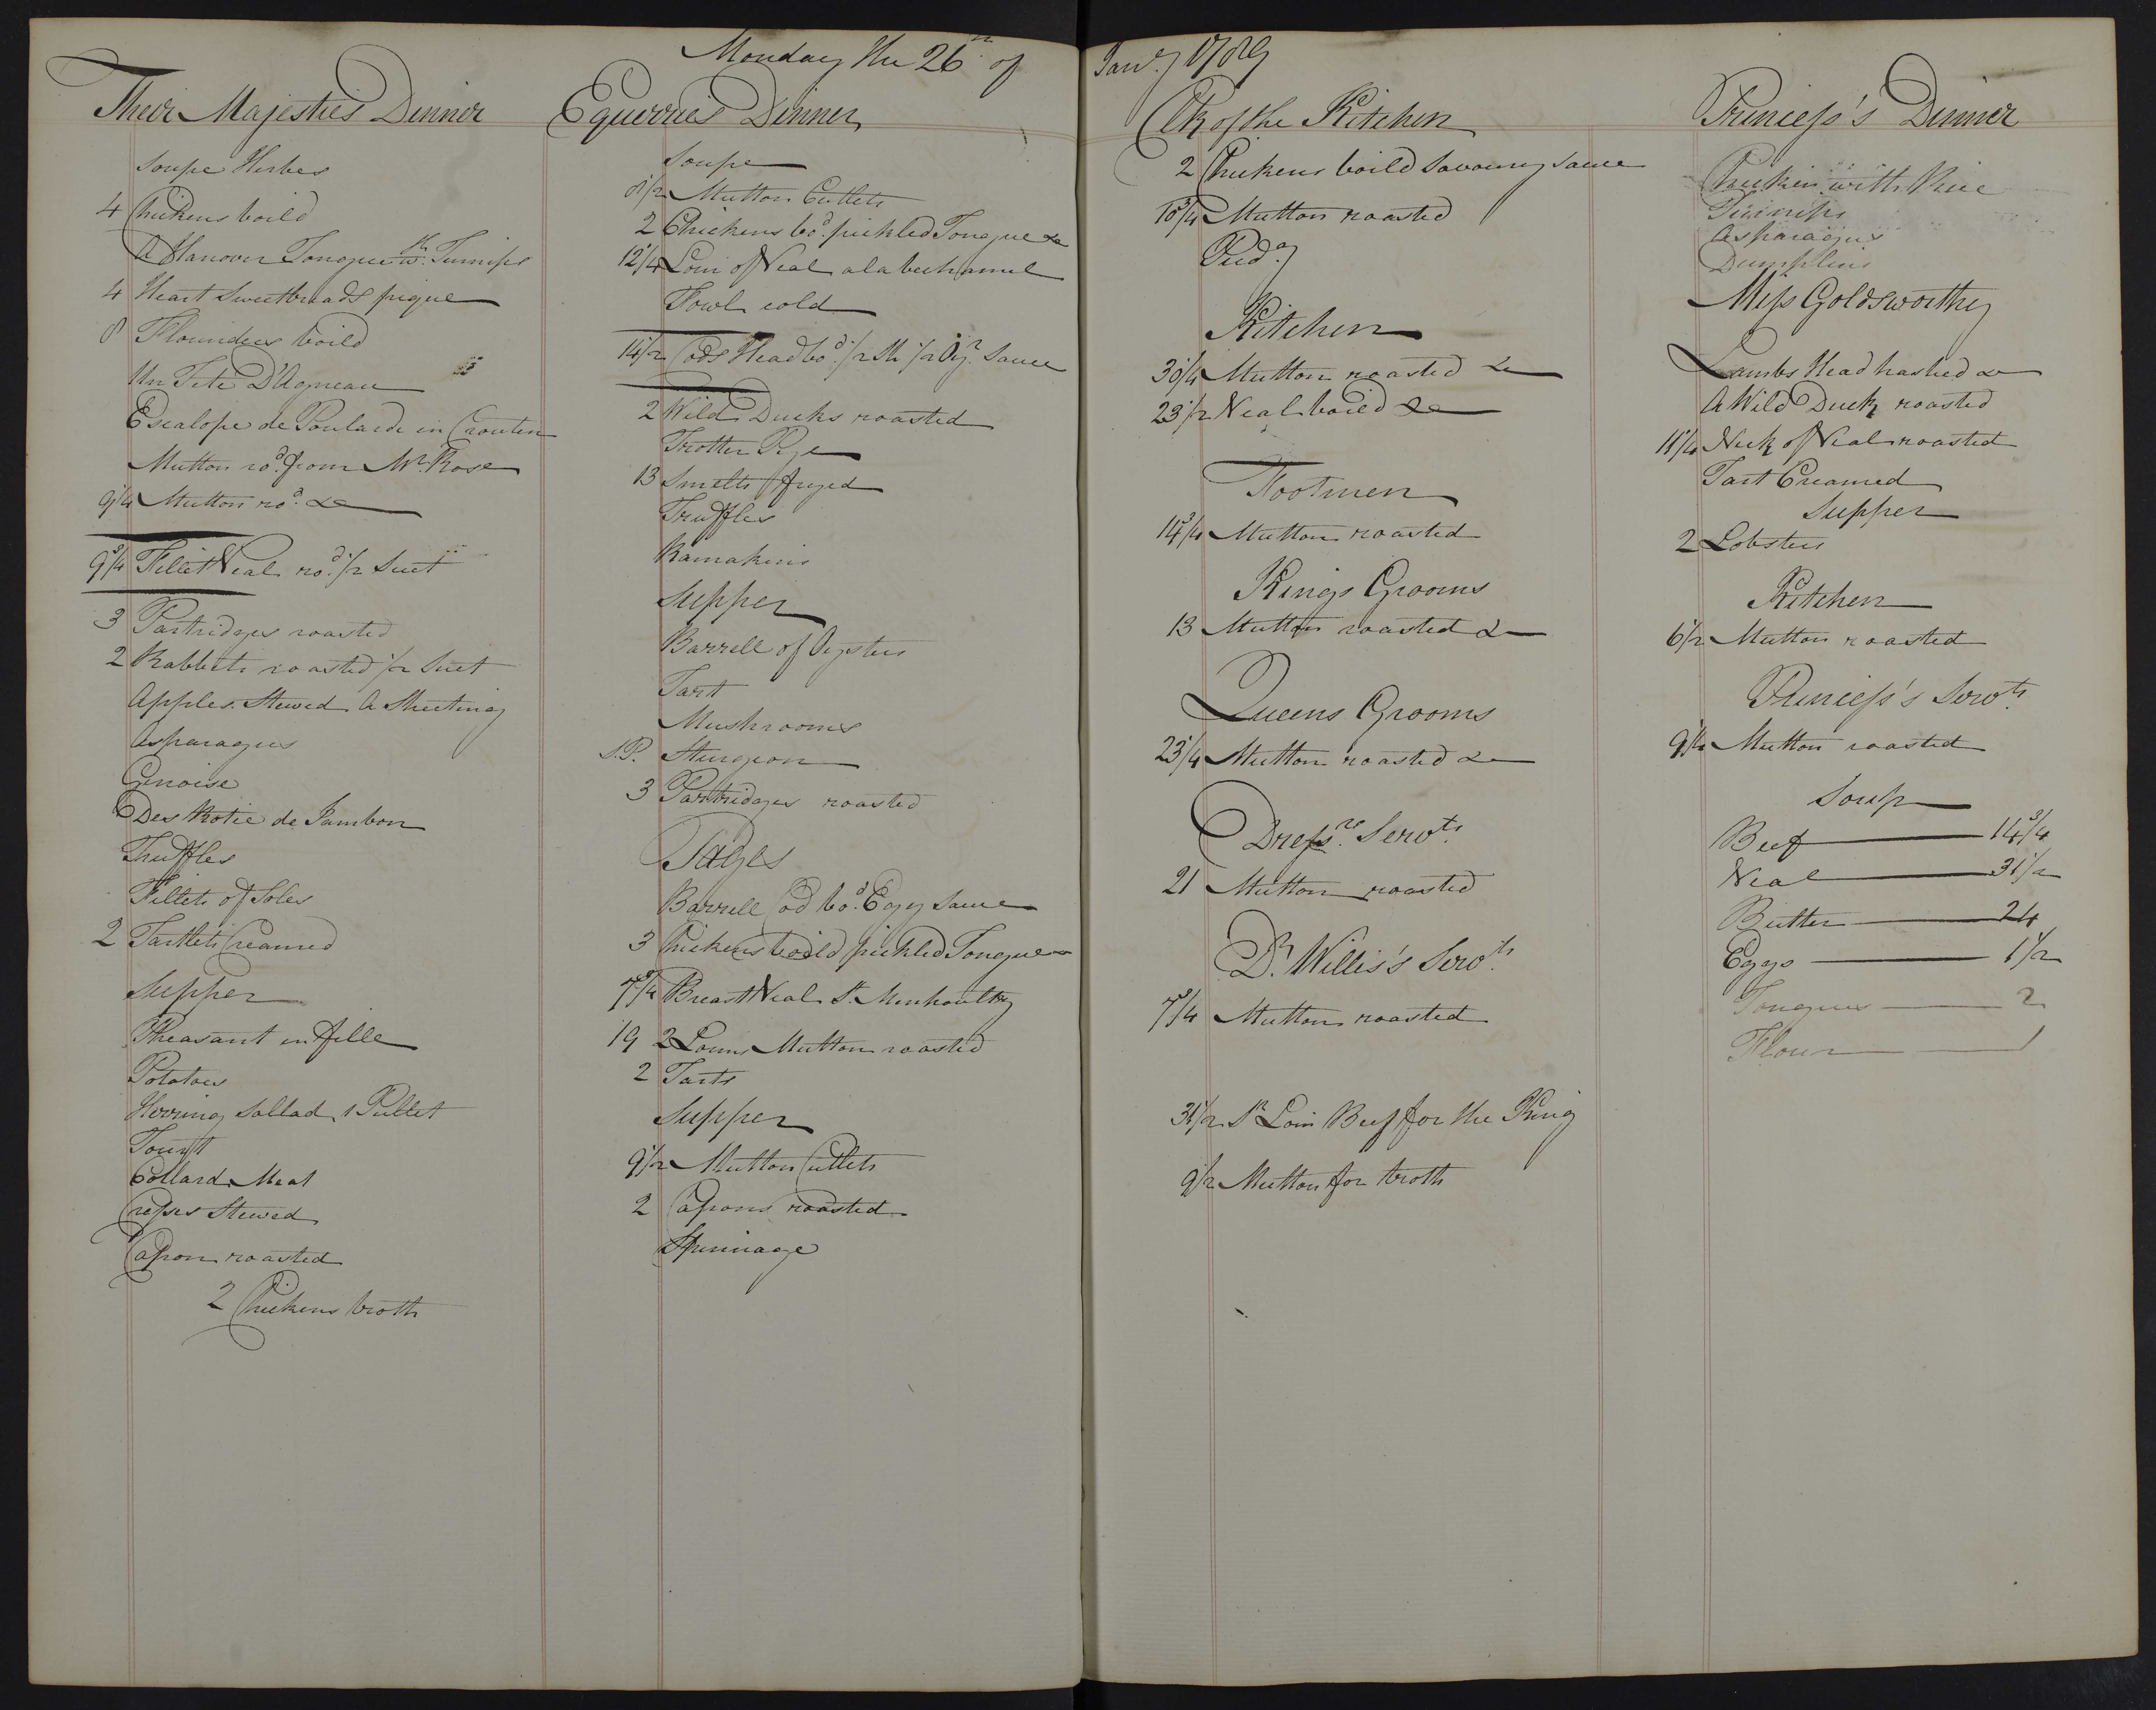 Monday the 26th of Janry 1789
Their Majesties Dinner
Soupe Herbes
4 Chickens boild
A Hanover Tongue wth Turnips
4 Heart Sweetbreads pique
8 Flounders boild
Un Tete D'Agneau
Escalope de Poularde in Crouten
Mutton rod. from Mr. Rose
9 1/4 Mutton rod. &c
9 3/4 Fillet Veal rod. 1/2 Suet
3 Partridges roasted
2 Rabbits roasted 1/2 Suet
Apples Stewed A Sheeting
Asparagus
Genoise
Des Rotie de Jambon
Truffles
Fillets of Soles
2 Tartlets Creamed
Supper
Pheasant en fille
Potatoes
Herring Sallad 1 Pullet
Tourt
Collard Meat
Cresses Stewed
Capon roasted
2 Chickens broth
Equerries Dinner
Soupe
8 1/2 Mutton Cutlets
2 Chickens bod. pickled Tongue &c
12 1/4 Loin of Veal a la bechamel
Fowl cold
14 1/2 Cods Head bod. 1/2 Sh 1/2 Oyr. Sauce
2 Wild Ducks roasted
Trotter Pye
13 Smelts fryed
Truffles
Ramakins
Supper
Barrell of Oysters
Tart
Mushrooms
S.P. Sturgeon
3 Partridges roasted
Pages
Barrell Cod bod. Egg Sauce
3 Chickens boild pickled Tongue
7 3/4 Breast Veal St. Menhoultz
19 2 Loins Mutton roasted
2 Tarts
Supper
9 1/2 Mutton Cutlets
2 Capons roasted
Spinnage
Clk of the Kitchen
2 Chickens boild Savoury Sauce
18 3/4 Mutton roasted
Pudg
Kitchen
30 1/4 Mutton roasted &c
23 1/2 Veal boild &c
Footmen
14 3/4 Mutton roasted
Kings Grooms
13 Mutton roasted &c
Queens Grooms
23 1/4 Mutton roasted &c
Dressrs. Servts.
21 Mutton roasted
Dr. Willis's Servts.
7 3/4 Mutton roasted
31 1/2 Sr Loin Beef for the King
9 1/2 Mutton for broth
Princess's Dinner
Chicken with Rice
Turnips
Asparagus
Dumplins
Miss Goldsworthy
Lambs Head hashed &c
A Wild Duck roasted
11 1/4 Neck of Veal roasted
Tart Creamed
Supper
2 Lobsters
Kitchen
6 1/2 Mutton roasted
Princess's Servts.
9 1/4 Mutton roasted
Soup
Beef 14 3/4
Veal 31 1/2
Butter 24
Eggs 1 1/2
Tongues 2
Flour 1